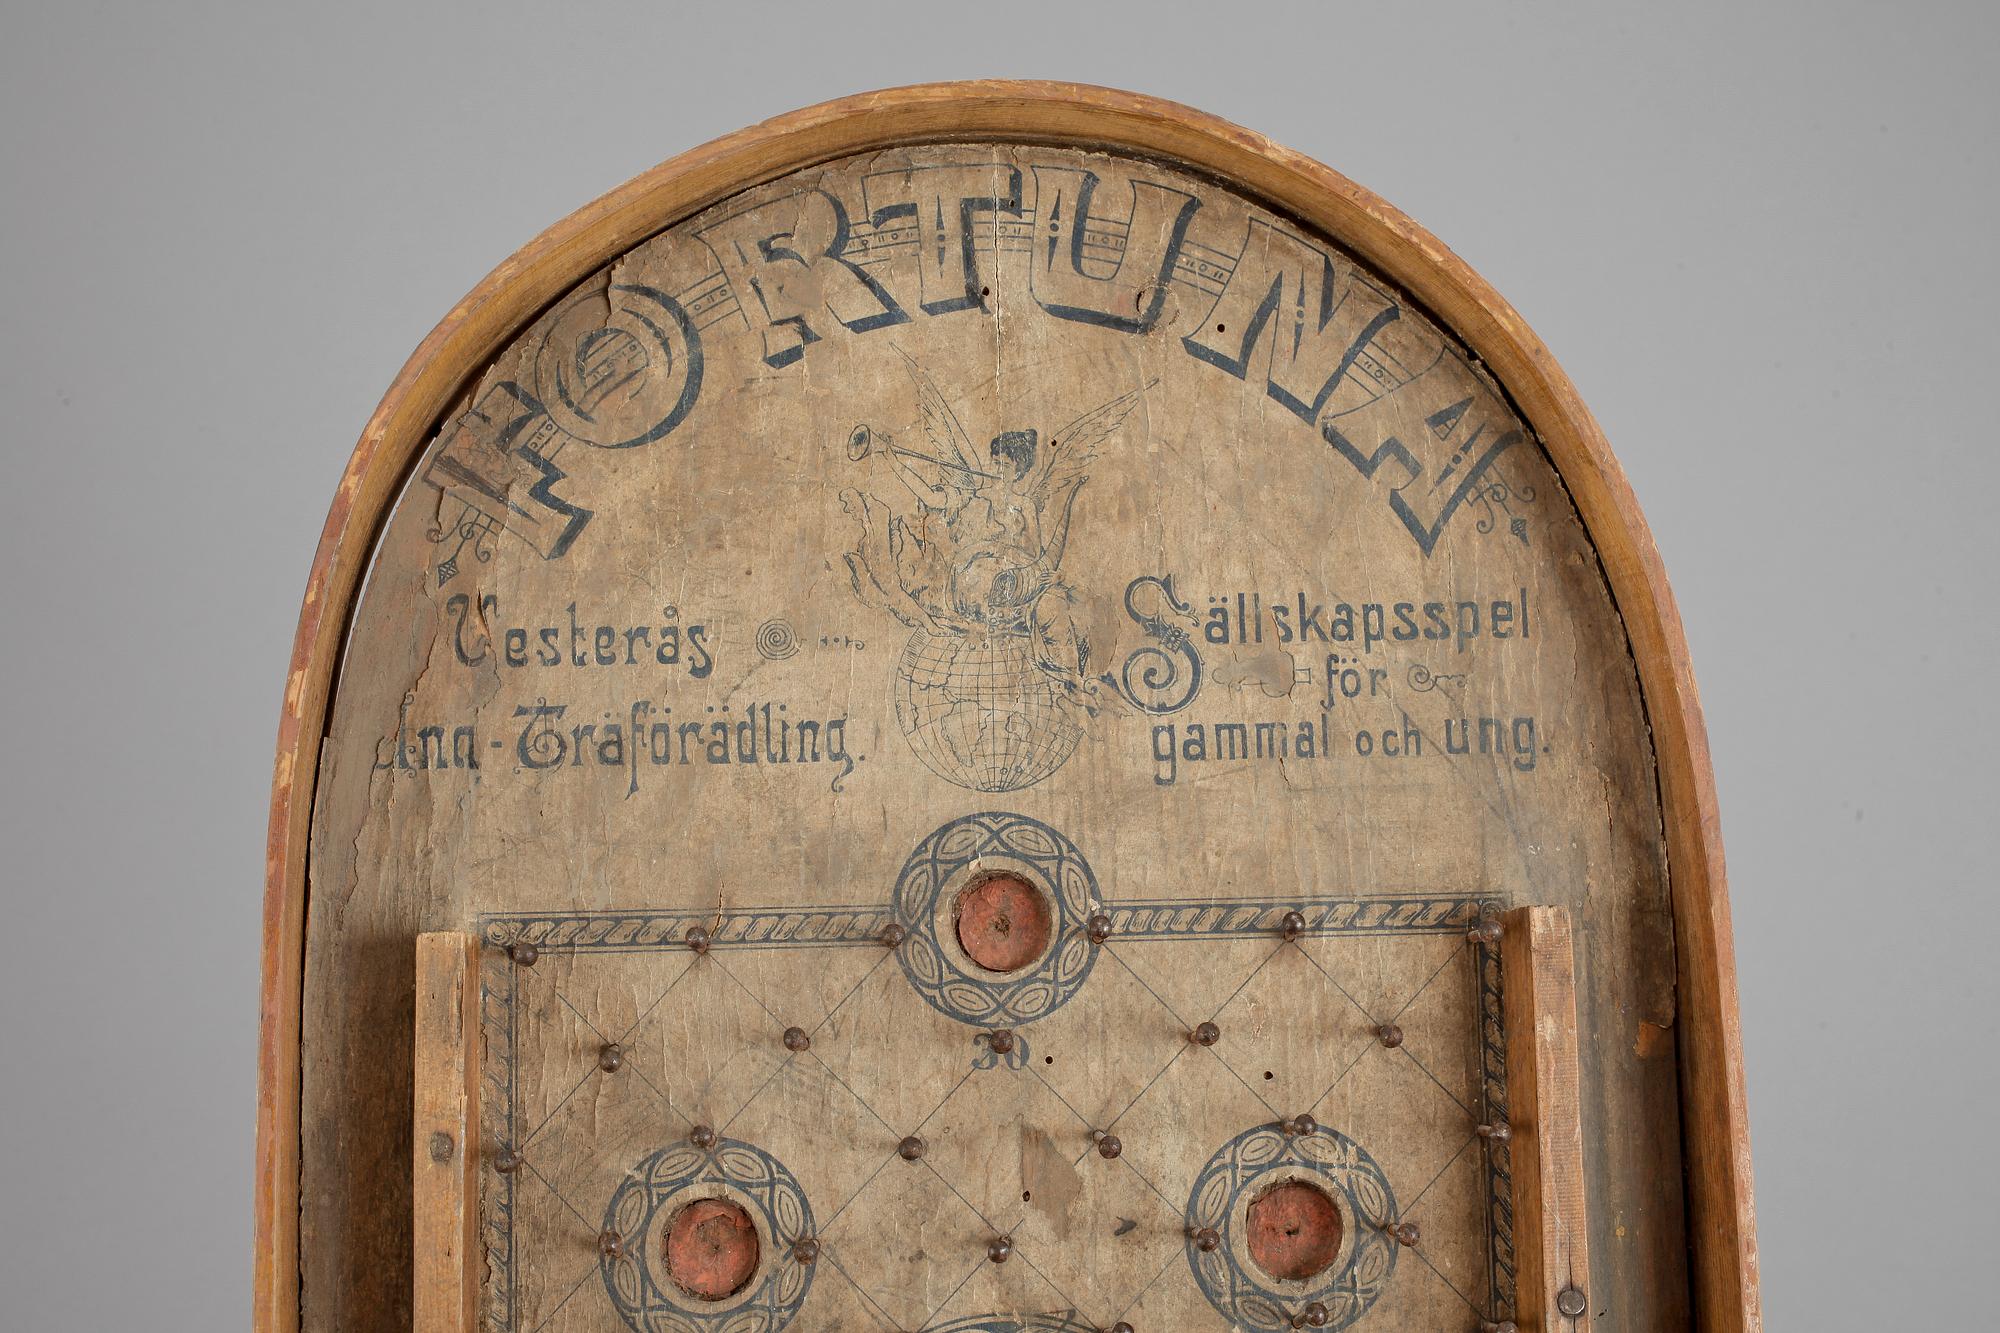 FORTUNA
Vesterås
Ång-Träförädling.
Sällskapsspel
för
gammal och ung.
30